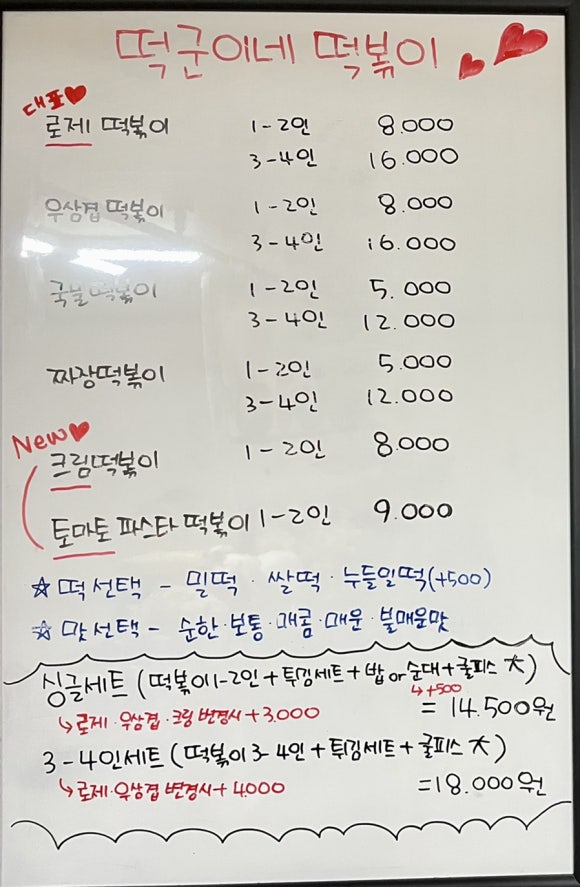 떡군이네 떡볶이
대표
로제 떡볶이 1-2인 8.000
3-4인 16.000
우삼겹 떡볶이 1-2인 8.000
3-4인 16.000
국물떡볶이 1-2인 5.000
3-4인 12.000
짜장떡볶이 1-2인 5.000
3-4인 12.000
New
크림떡볶이 1-2인 8.000
토마토 파스타 떡볶이 1-2인 9.000
☆ 떡선택 - 밀떡 · 쌀떡 · 누들밀떡(+500)
☆ 맛선택 - 순한·보통·매콤·매운·불매운맛
싱글세트 (떡볶이1-2인+튀김세트+밥 or 순대+쿨피스 大)
↳+500
↳로제·우삼겹·크림 변경시+3.000 = 14.500원
3-4인세트 (떡볶이 3-4인+튀김세트+쿨피스 大)
↳로제·우삼겹 변경시+4.000 =18.000원